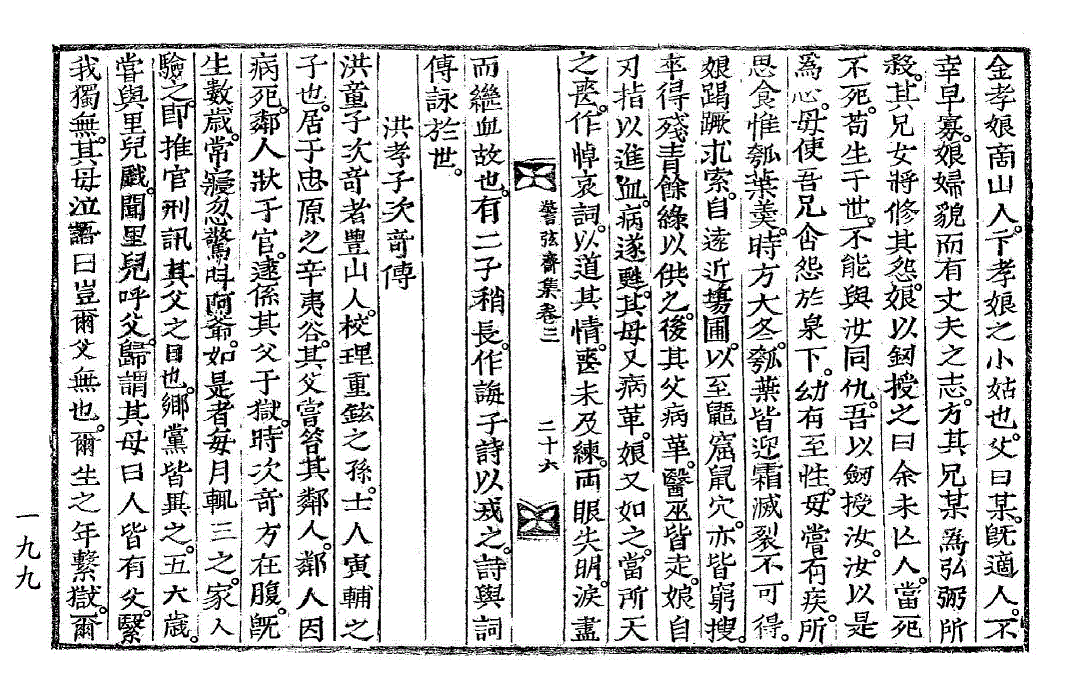 金孝娘商山人。卞孝娘之小姑也。父曰某。旣適人。不
幸早寡。娘婦貌而有丈夫之志。方其兄某爲弘弼所
殺。其兄女將修其怨。娘以劒授之曰余未亾人。當死
不死。苟生于世。不能與汝同仇。吾以劒授汝。汝以是
爲心。毋使吾兄含怨於泉下。幼有至性。母嘗有疾。所
思食惟瓠葉羹。時方大冬。瓠葉皆迎霜滅裂不可得。
娘跼蹶求索。自遠近場圃。以至鼯窟鼠穴。亦皆窮搜。
卒得殘靑餘綠以供之。後其父病革。醫巫皆走。娘自
刃指以進血。病遂甦。其母又病革。娘又如之。當所天
之喪。作悼哀詞。以道其情。喪未及練。両眼失明。淚盡
警弦齋集卷三 二十六
而繼血故也。有二子稍長。作誨子詩以戒之。詩與詞
傳詠於世。
洪孝子次奇傳
洪童子次奇者豊山人。校理重鉉之孫。士人寅輔之
子也。居于忠原之辛夷谷。其父嘗笞其鄰人。鄰人因
病死。鄰人狀于官。逮係其父于獄。時次奇方在腹。旣
生數歲。常寢忽驚呌阿爺。如是者每月輒三之。家人
驗之。卽推官刑訊其父之日也。鄕黨皆異之。五六歲。
嘗與里兒戱。聞里兒呼父。歸謂其母曰人皆有父。繄
我獨無。其母泣語曰豈爾父無也。爾生之年繫獄。爾
一九九